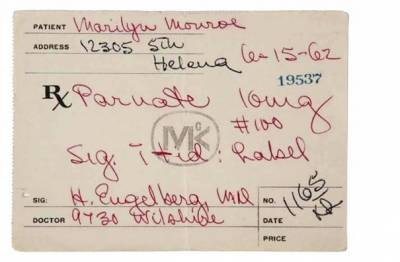 PATIENT Marilyn Monroe
ADDRESS 12305 5th
Helena 6-15-62
19537
Rx Parnate 10mg
#100
MCK
Sig. T tid : Label
SIG: H. Engelberg, MD NO. 1165
DOCTOR 9730 Wilshire DATE
PRICE